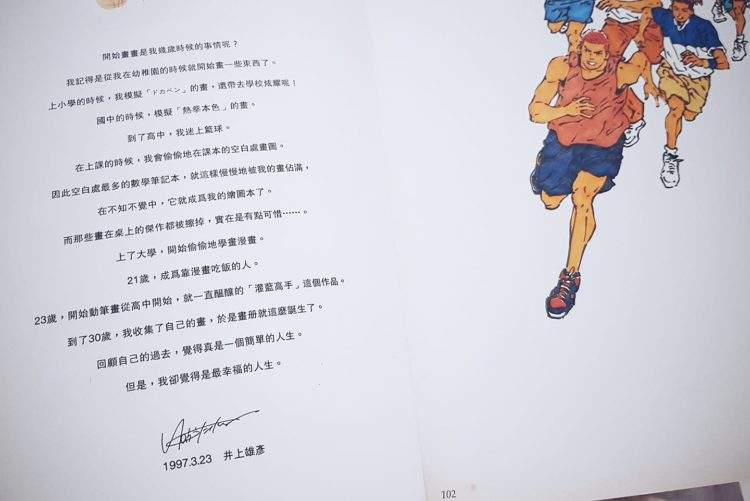 開始畫畫是我幾歲時候的事情呢？
我記得是從我在幼稚園的時候就開始畫一些東西了。
上小學的時候，我模擬「ドカベン」的畫，還帶去學校炫耀呢！
國中的時候，模擬「熱拳本色」的畫。
到了高中，我迷上籃球。
在上課的時候，我會偷偷地在課本的空白處畫圖。
因此空白處最多的數學筆記本，就這樣慢慢地被我的畫佔滿，
在不知不覺中，它就成爲我的繪圖本了。
而那些畫在桌上的傑作都被擦掉，實在是有點可惜……。
上了大學，開始偷偷地學畫漫畫。
21歲，成爲靠漫畫吃飯的人。
23歲，開始動筆畫從高中開始，就一直醞釀的「灌籃高手」這個作品。
到了30歲，我收集了自己的畫，於是畫册就這麼誕生了。
回顧自己的過去，覺得真是一個簡單的人生。
但是，我卻覺得是最幸福的人生。
1997.3.23 井上雄彥
102